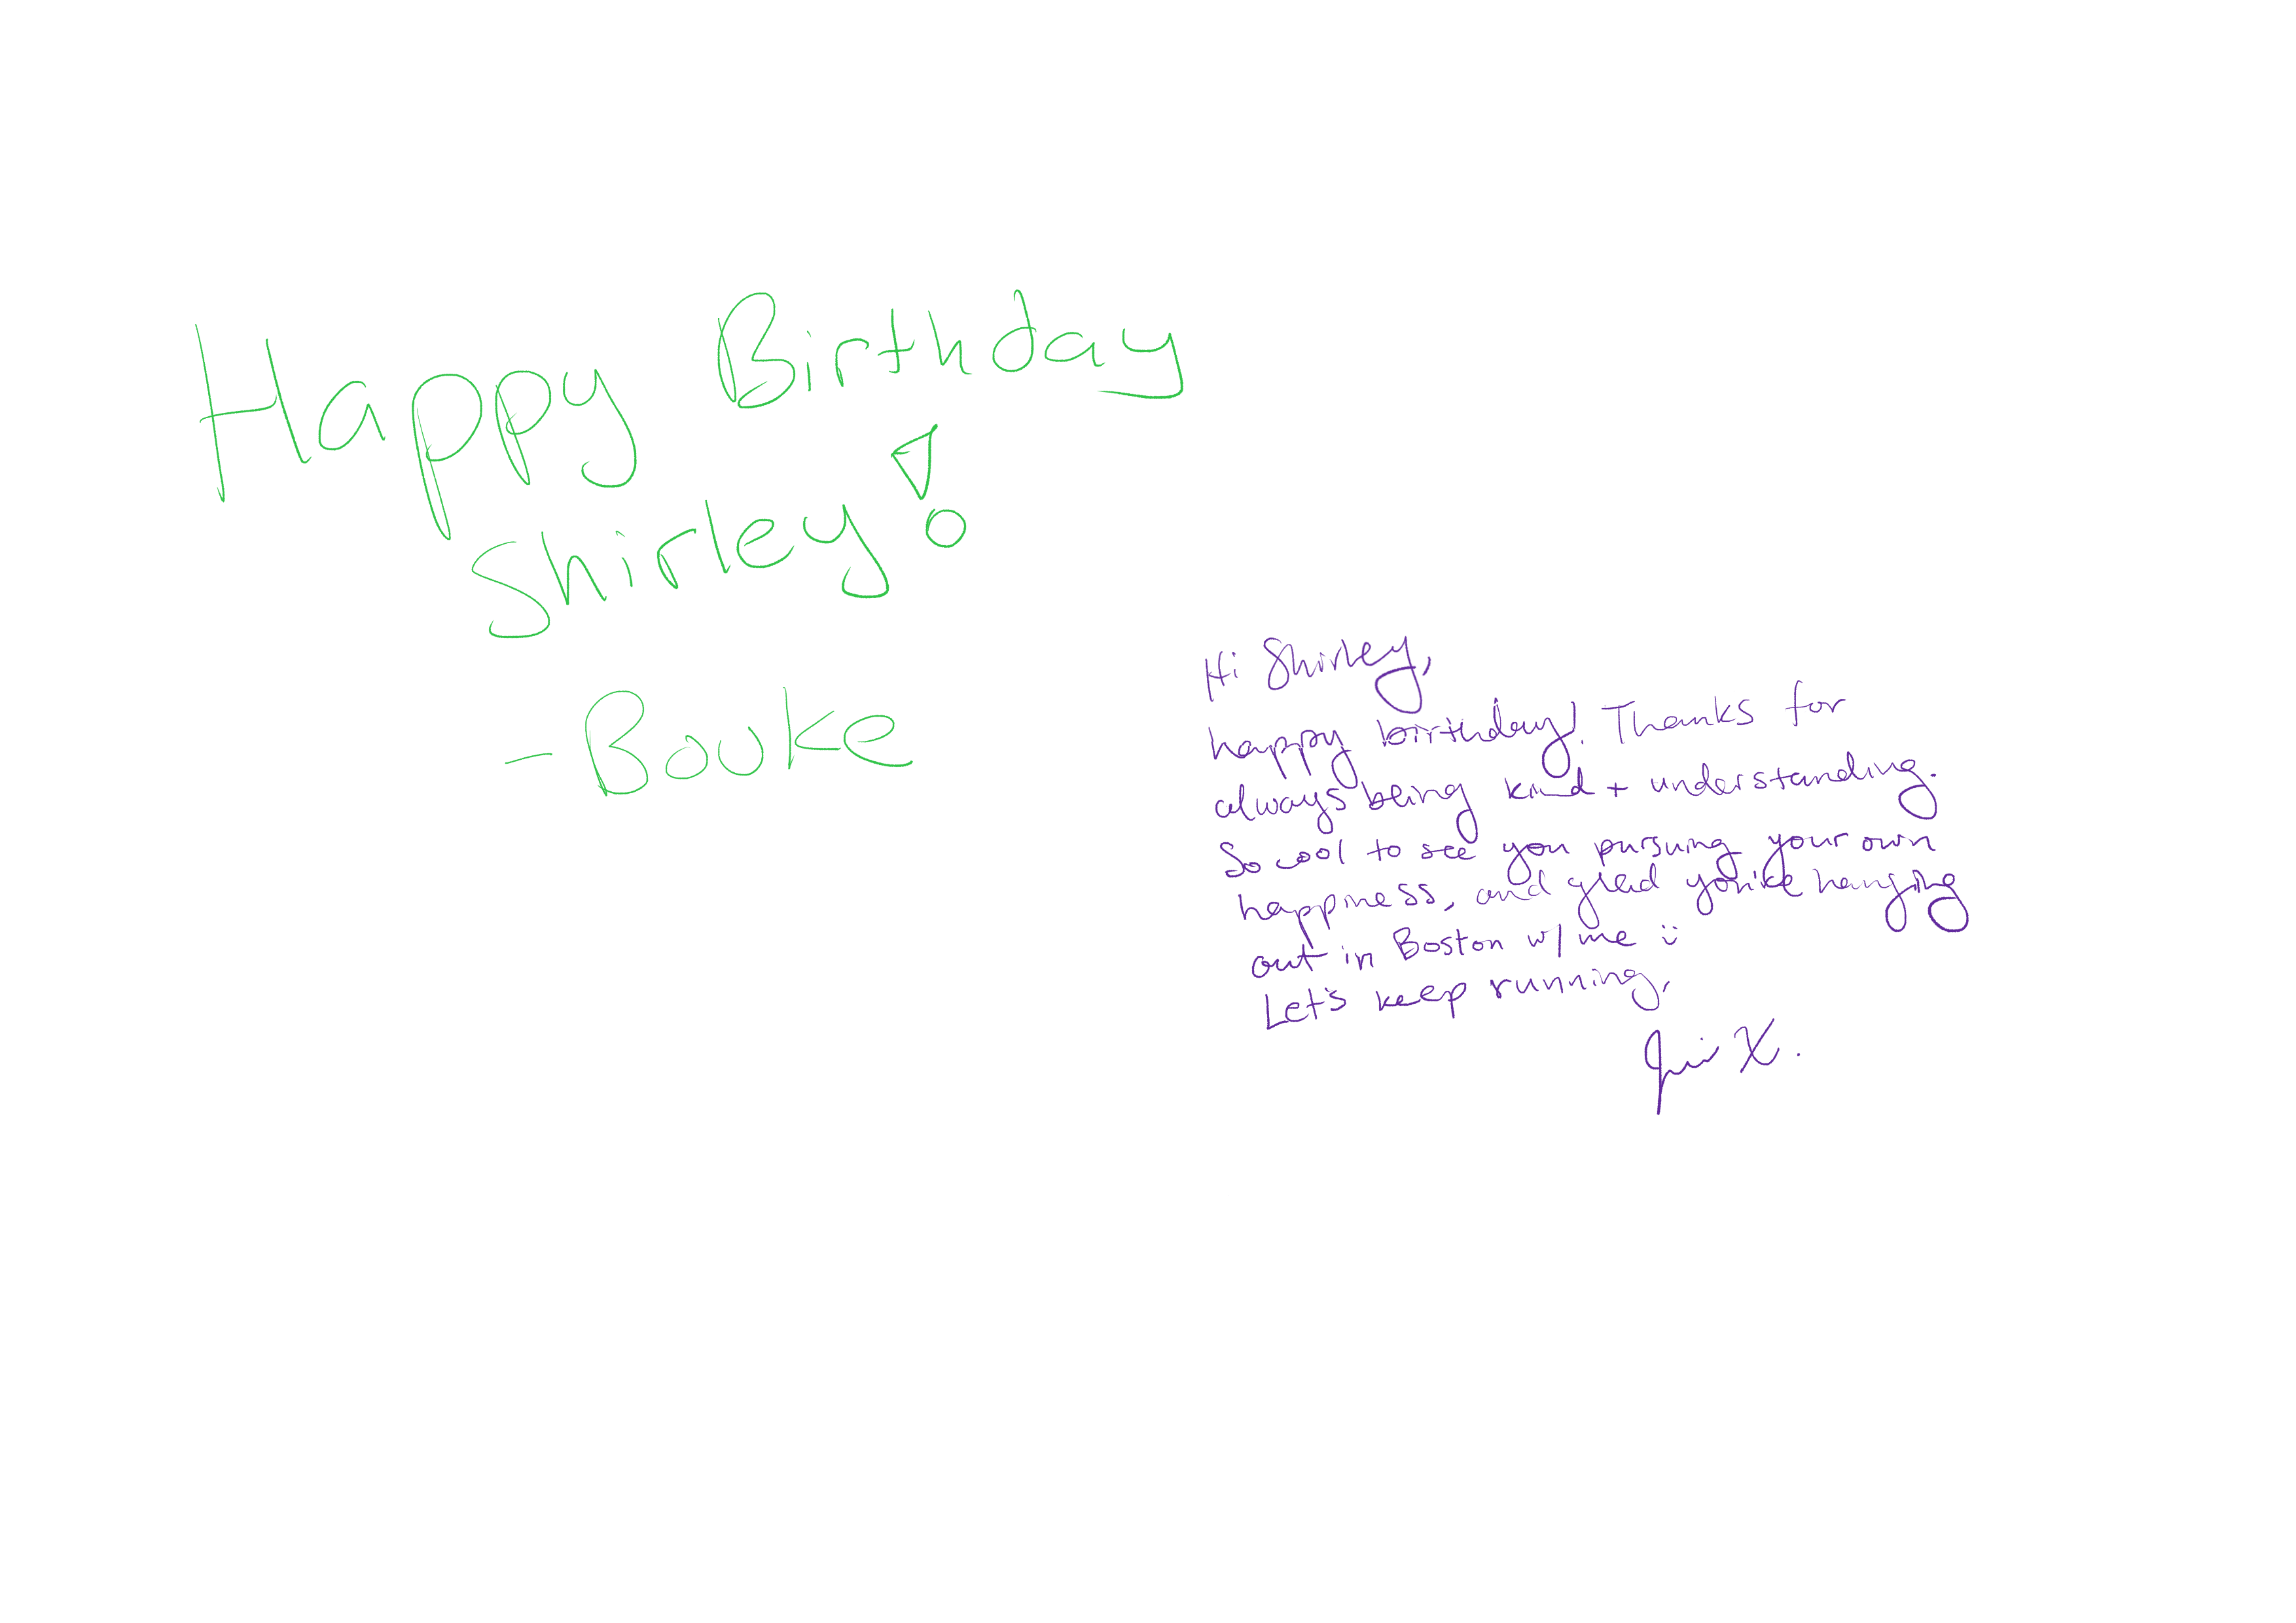 Happy Birthday
Shirley!
-Bouke
Hi Shirley,
happy birthday! Thanks for
always being kind + understanding.
So cool to see you pursuing your own
happiness, and glad you're hanging
out in Boston w/ me :)
Let's keep running,
X.